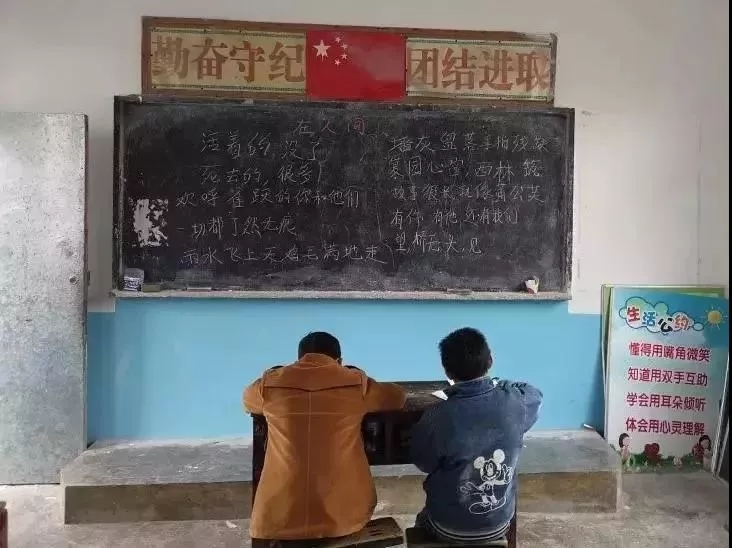 勤奋守纪 团结进取
在人间
活着的,没了
死去的,很多
欢呼雀跃的你和他们
一切都了然无痕
雨水飞上天鸡毛满地走
墙灰
故事很长就像蒲公英
有你 有他 还有我们
生活公约
懂得用嘴角微笑
知道用双手互助
学会用耳朵倾听
体会用心灵理解